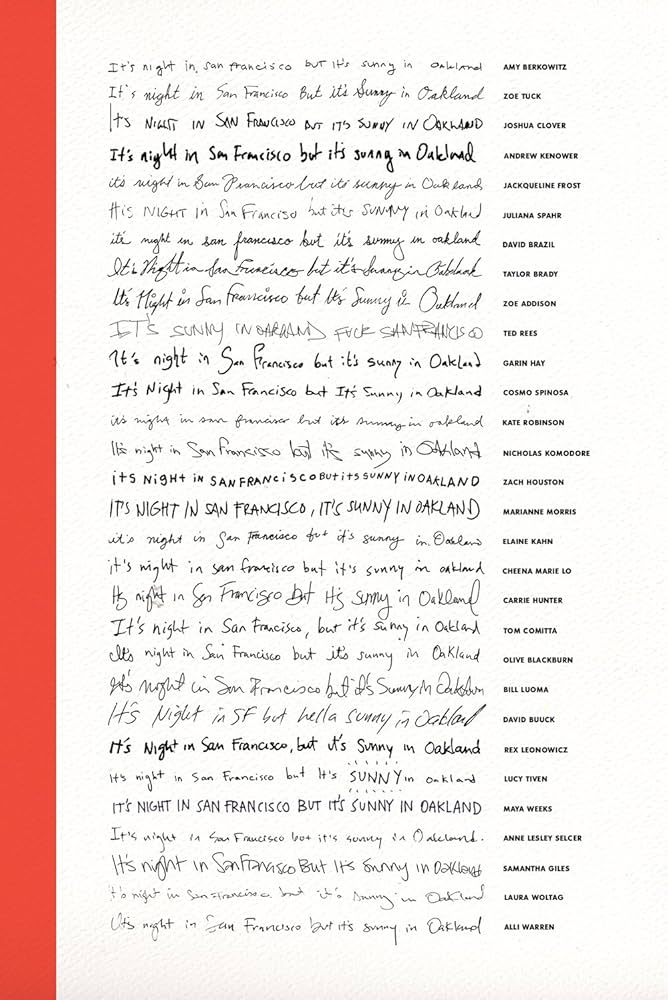 It's night in san francisco but it's sunny in oakland AMY BERKOWITZ
It's night in San Francisco But it's Sunny in Oakland ZOE TUCK
It's NIGHT IN SAN FRANCISCO BUT IT'S SUNNY IN OAKLAND JOSHUA CLOVER
It's night in San Francisco but it's sunny in Oakland ANDREW KENOWER
it's night in San Francisco but it's sunny in Oakland JACQUELINE FROST
It's NIGHT in San Francisco but it's SUNNY in Oakland JULIANA SPAHR
it's night in san francisco but it's sunny in oakland DAVID BRAZIL
It's Night in San Francisco but it's Sunny in Oakland TAYLOR BRADY
It's Night in San Francisco but It's Sunny in Oakland ZOE ADDISON
IT'S SUNNY IN OAKLAND FUCK SAN FRANCISCO TED REES
It's night in San Francisco but it's sunny in Oakland GARIN HAY
It's Night in San Francisco but It's Sunny in Oakland COSMO SPINOSA
it's night in san francisco but it's sunny in oakland KATE ROBINSON
It's night in San Francisco but it's sunny in Oakland NICHOLAS KOMODORE
its NigHT in SAN FRANCISCO BUT its SUNNY iN OAKLAND ZACH HOUSTON
IT'S NIGHT IN SAN FRANCISCO, IT'S SUNNY IN OAKLAND MARIANNE MORRIS
it's night in San Francisco but it's sunny in Oakland ELAINE KAHN
it's night in san francisco but it's sunny in oakland CHEENA MARIE LO
It's night in San Francisco But It's sunny in Oakland CARRIE HUNTER
It's night in San Francisco, but it's sunny in Oakland TOM COMITTA
It's night in San Francisco but it's sunny in Oakland OLIVE BLACKBURN
It's night in San Francisco but it's Sunny in Oakland BILL LUOMA
It's Night in SF but hella sunny in Oakland DAVID BUUCK
It's Night in San Francisco, but it's Sunny in Oakland REX LEONOWICZ
It's night in San Francisco but It's SUNNY in Oakland LUCY TIVEN
IT'S NIGHT IN SAN FRANCISCO BUT IT'S SUNNY IN OAKLAND MAYA WEEKS
It's night in San Francisco but it's sunny in Oakland. ANNE LESLEY SELCER
It's night in San Francisco But It's Sunny in Oakland SAMANTHA GILES
it's night in San Francisco but it's sunny in Oakland LAURA WOLTAG
It's night in San Francisco but it's sunny in Oakland ALLI WARREN